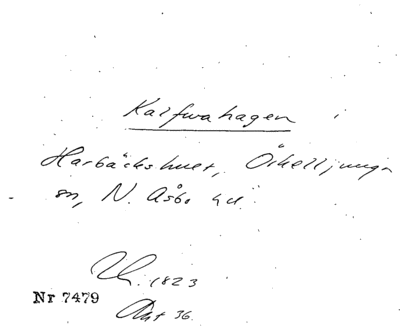 Kalfwahagen
Harbäckshult, Örkelljunga
sn, N. Åsbo hd.
1823
Nr 7479
Akt 36.